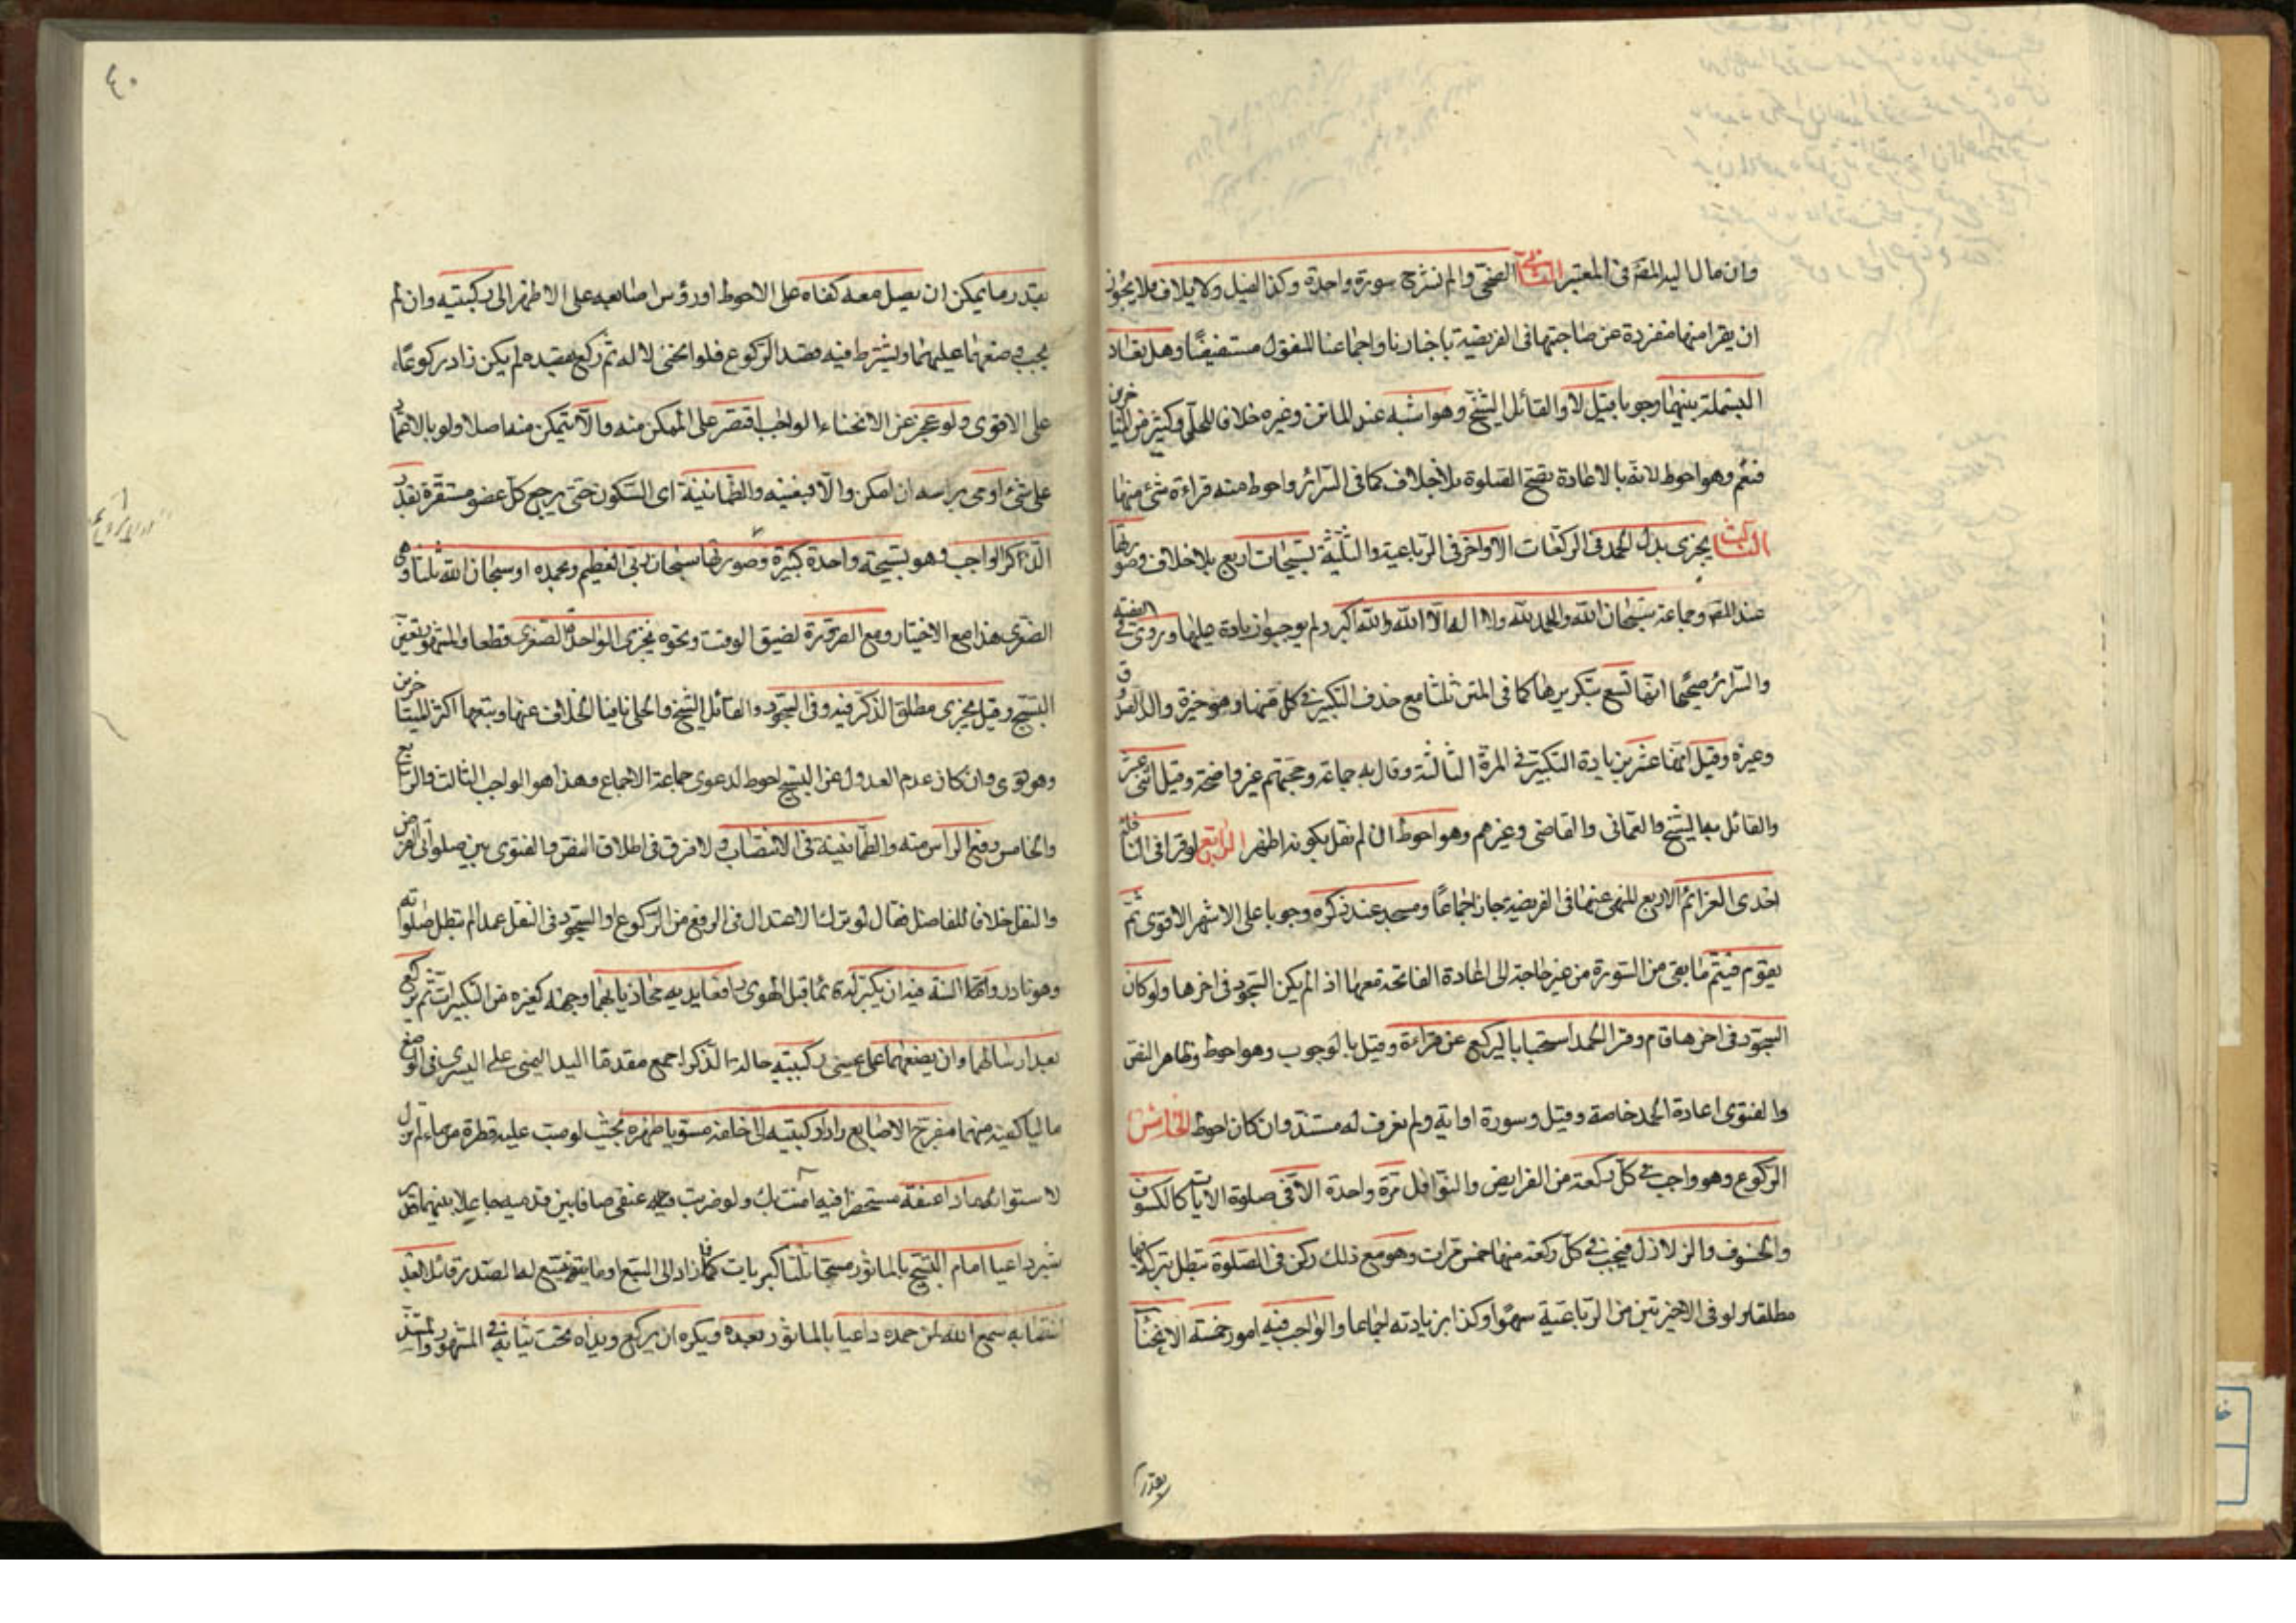 وان مال اليه المصَ في المعتبر الثانى الضحى والم نشرح سورة واحدة وكذا الفيل ولايلاف فلا يجوز
ان يقرا منهما منفردة عن صاحبتها في الفريضة باخبارنا واجماعنا المنقول مستفيضًا وهل تعاد
البسملة بينهما وجوبا قيل لا والقائل الشيخ وهو اشبه عند الماتن وغيره خلافا للحلّي وكثير من المتاخرين
فنعم وهو احوط لانه بالاعادة تصح الصلوة بلا خلاف كما فى السّرائر واحوط منه قراءة شئ منهما
الثالث يجزى بدل الحمد في الركعات الاواخر في الرباعية والثلثية تسبيحات اربع بلا خلاف وصورتها
عند المصَ وجماعة سبحان الله والحمد لله ولا اله الا الله والله اكبر ولم يوجبوا زيادة عليها وروى في الفقيه
والسّرائر صحيحًا انها تسع بتكريرها كما في المتن ثلثا مع حذف التكبير في كل منها وهو خيرة والد الصدوق
وغيره وقيل انها عشر بزيادة التكبير في المرّة الثالثة وقال به جماعة وحجتهم غير واضحة وقيل اثنى عشر
والقائل به الشيخ والعمانى والقاضى وغيرهم وهو احوط ان لم نقل بكونه اظهر الرابع لو قرا في النافلة
احدى العزائم الاربع المنهى عنها في الفريضة جاز اجماعًا وسجد عند ذكره وجوبا على الاشهر الاقوى ثمّ
يقوم فيتم ما بقى من السّورة من غير حاجة الى اعادة الفاتحة معها اذا لم يكن السّجود في اخرها ولو كان
السجود في اخرها قام وقرا الحمد استحبابا ليركع عن قراءة وقيل بالوجوب وهو احوط وظاهر النص
والفتوى اعادة الحمد خاصة وقيل وسورة او اية ولم نعرف له مستندًا وان كان احوط الخامس
الركوع وهو واجب في كلّ ركعة من الفرايض والنوافل مرّة واحدة الّا في صلوة الايات كالكسوف
والخسوف والزلازل فيجب في كلّ ركعة منها خمس مرّات وهو مع ذلك ركن في الصّلوة تبطل بتركه فيها
مطلقا ولو في الاخيرتين من الرّباعيّة سهوًا وكذا بزيادته اجماعا والواجب فيه امور خمسة الانحناء
بقدر
٤٠
بقدر ما يمكن ان يصل معه كفاه على الاحوط او رؤس اصابعه على الاظهر الى ركبتيه وان لم
يجب وضعهما عليهما ويشترط فيه قصد الرّكوع فلو انحنى لا له ثم ركع بقصده لم يكن زاد ركوعًا
على الاقوى ولو عجز عن الانحناء الواجب اقتصر على الممكن منه والا يتمكن منه اصلا ولو بالاعتماد
على شئ اومى براسه ان امكن والّا فبعينيه والطّمانينة اى السّكون حتى يرجع كلّ عضو مستقره بقدر
الذّكر الواجب وهو تسبيحة واحدة كبيرة وصورتها سبحان ربى العظيم وبحمده او سبحان الله ثلثا وهى
الصغرى هذا مع الاختيار ومع الضرورة لضيق الوقت ونحوه يجزى الواحدة الصّغرى قطعا والمشهور تعين
التسبيح وقيل يجزى مطلق الذّكر فيه وفى السّجود والقائل الشيخ والحلى نافيا الخلاف عنه وتبعهما اكثر المتاخرين
وهو قوى وان كان عدم العدول عن التسبيح احوط لدعوى جماعة الاجماع وهذا هو الواجب الثالث والرابع
والخامس رفع الراس منه والطّمانينة في الانتصاب ولا فرق في اطلاق النص والفتوى بين صلواتى الفرض
والنفل خلافا للفاضل فقال لو ترك الاعتدال في الرفع من الرّكوع او السّجود في النفل عمدا لم تبطل صلواته
وهو نادر وامّا السنّة فيه ان يكبّر له قائما قبل الهوى رافعا يديه محاذيا بهما وجهه كغيره من التكبيرات ثم يركع
بعد ارسالهما وان يضعهما على عينى ركبتيه حالة الذّكر اجمع مقدما اليد اليمنى على اليسرى في الوضع
ماليا كفيه منهما مفرج الاصابع رادا ركبتيه الى خلفه مستويا ظهره بحيث لو صبّ عليه قطرة من ماء لم تزل
لاستوائه مادا عنقه مستحضرا فيه امنت بك ولو ضربت عنقى صافا بين قدميه جاعلا بينهما قدر
شبر داعيا امام التسبيح بالماثور مسبحا ثلثا كبريات فما زاد الى السّبع وما يتسع لها الصّدر قائلا بعد
انتصابه سمع الله لمن حمده داعيا بالماثور بعده ويكره ان يركع ويداه تحت ثيابه في المشهور